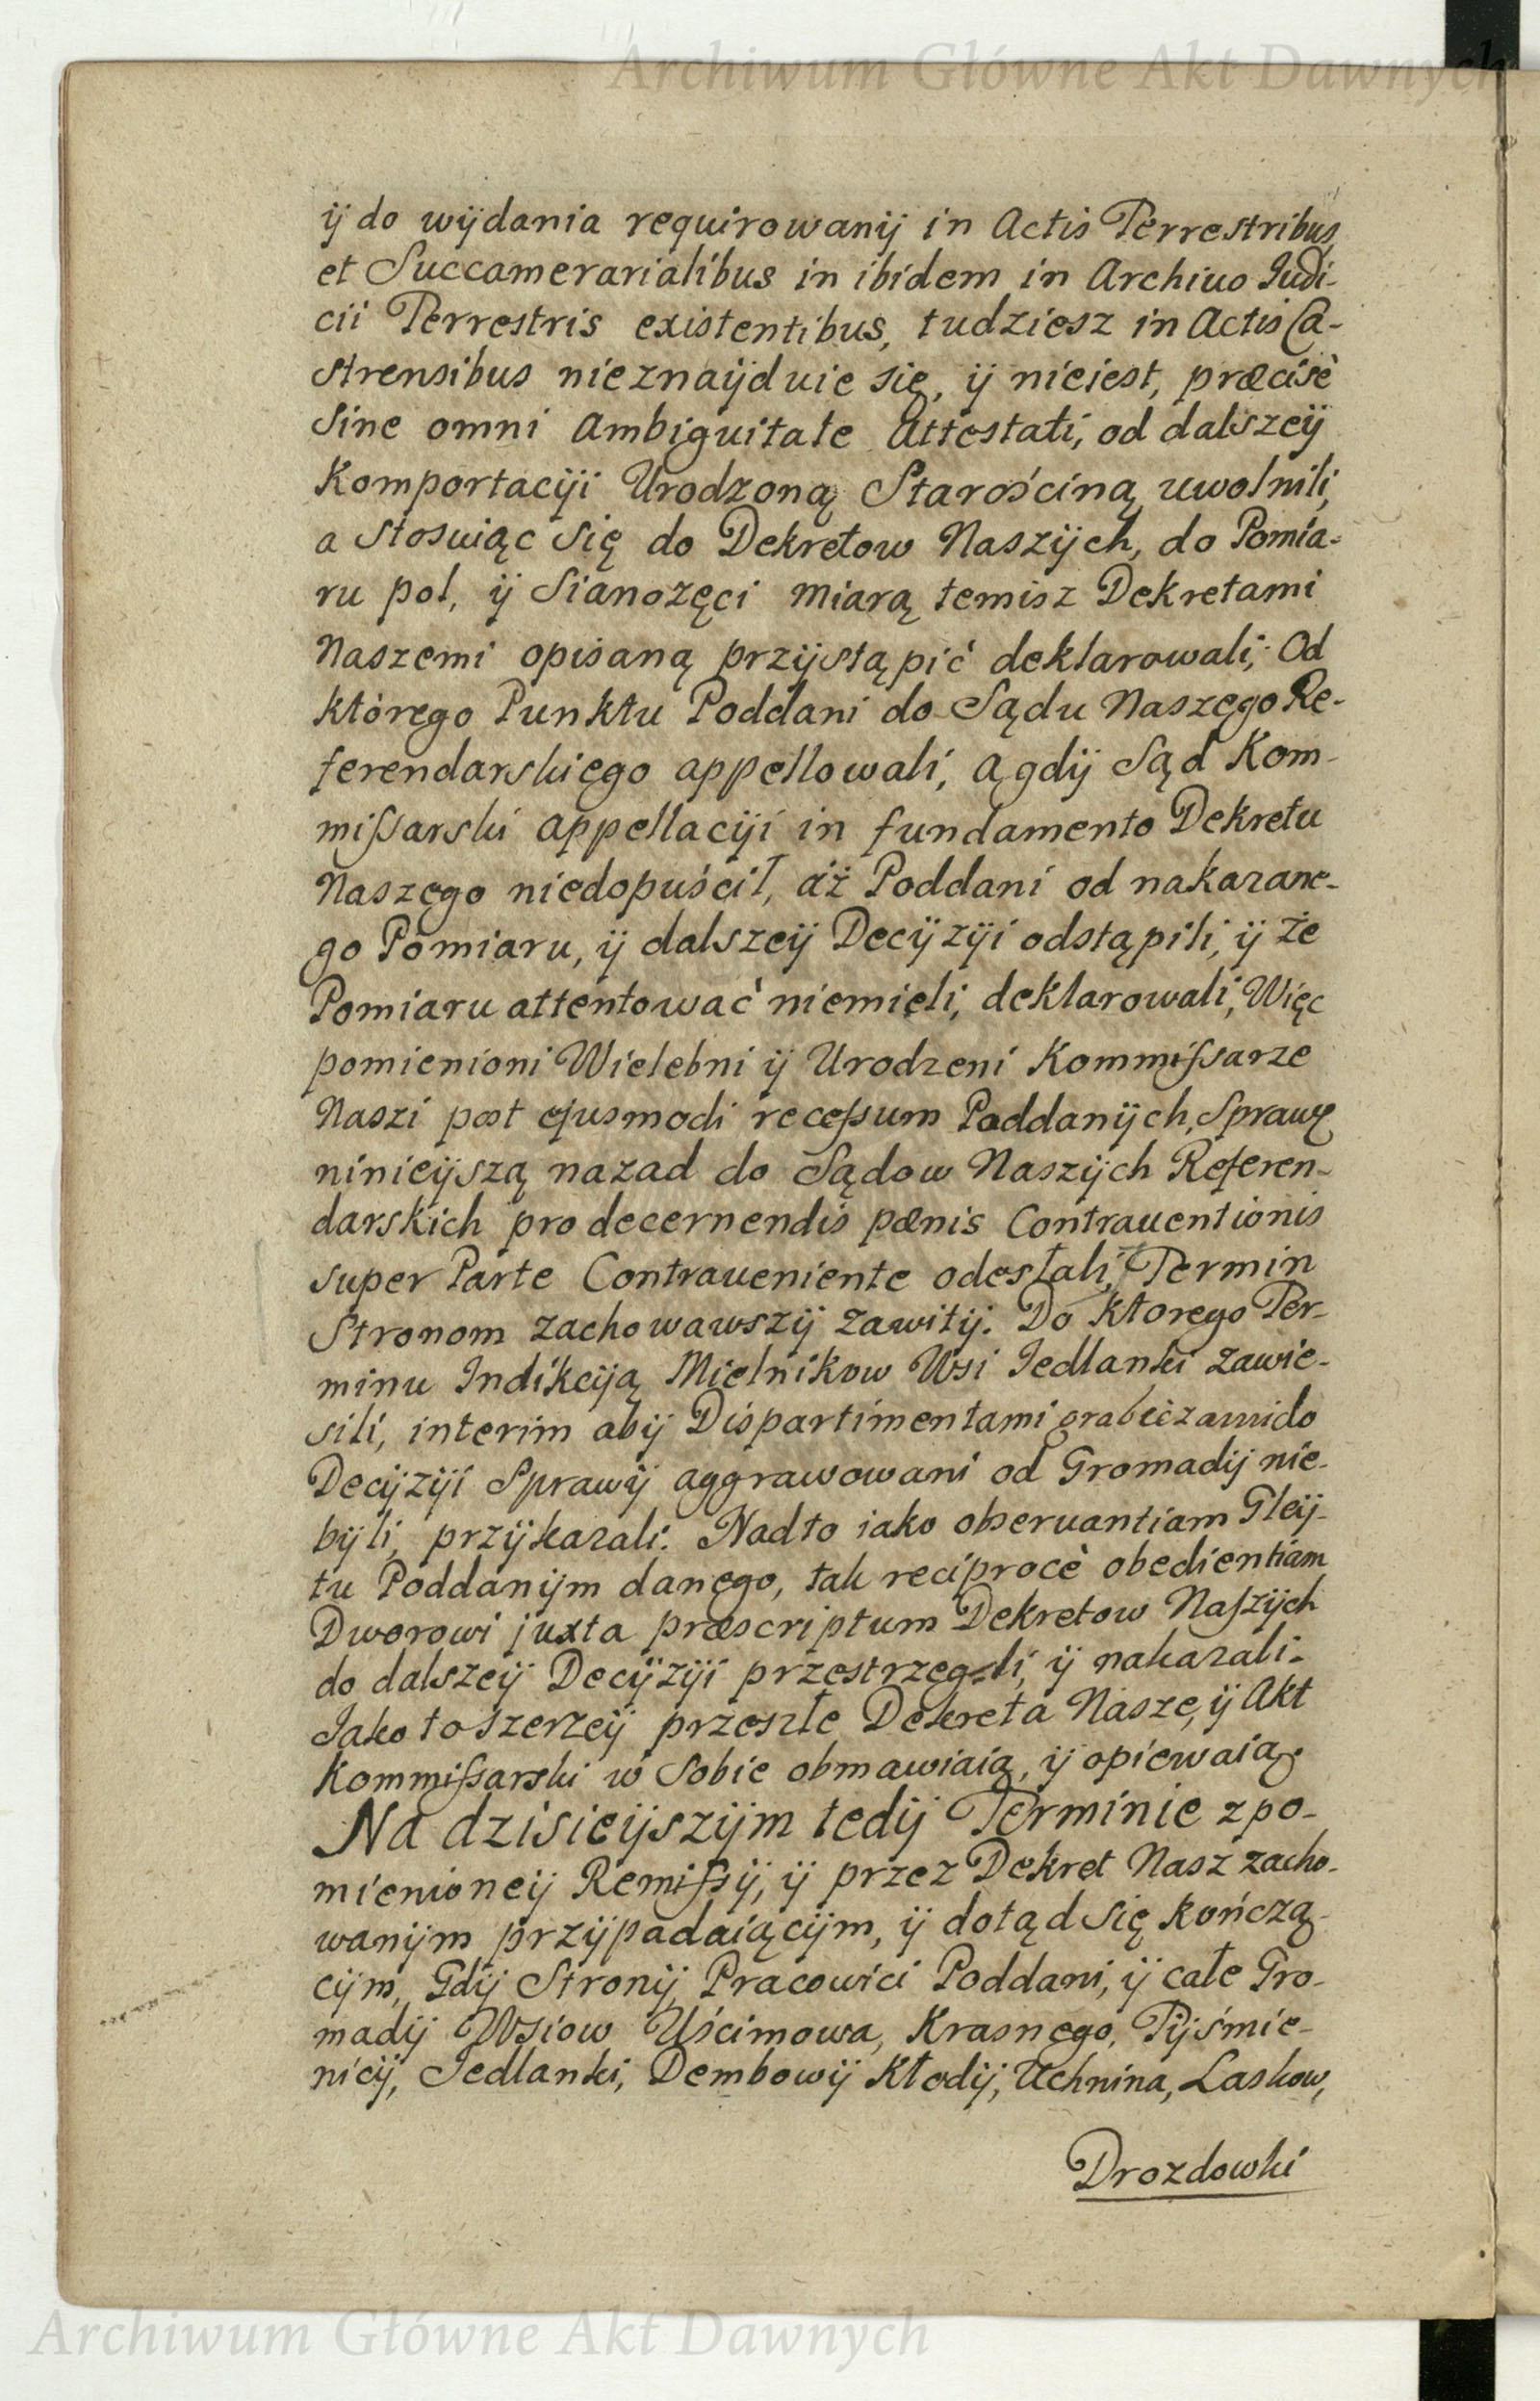 Archiwum Główne Akt Dawnych
ij do wijdania requirowanij in Actis Terrestribus
et Succamerarialibus in ibidem in Archiuo Judi-
cii Terrestris existentibus, tudziesz in Actis Ca-
strensibus nieznaijduie się, ij nieiest, præcisè
Sine omni Ambiguitate Attestati, od dalszeij
Komportacÿi Urodzoną Starościną uwolnili,
a Stosuiąc Się do Dekretow Naszijch, do Pomia-
ru pol, ij Sianozęci miarą temisz Dekretami
Naszemi opisaną przijstąpić deklarowali; Od
ktòrego Punktu Poddani do Sądu Naszęgo Re-
ferendarskiego appellowali, A gdij Sąd Kom-
missarski appellacÿi in fundamento Dekretu
Naszęgo niedopuścił, aż Poddani od nakazane-
go Pomiaru, ij dalszeij Decijzÿi odstąpili, ij że
Pomiaru attentować niemieli, deklarowali, Więc
pomienioni Wielebni ij Urodzeni Kommissarze
Naszi post ejusmodi recessum Poddanijch, Sprawę
ninieijszą nazad do Sądow Naszijch Referen-
darskich pro decernendis pœnis Contrauentionis
super Parte Contraueniente odesłali, Termin
Stronom zachowawszij zawitij. Do ktorego Ter-
minu Indikcÿą Mielnikow Wsi Jedlanki zawie-
sili, interim abij Dispartimentami grabieżami do
Decijzÿi Sprawij aggrawowani od Gromadij nie-
bijli, przijkazali. Nadto iako obseruantiam Gleij-
tu Poddanijm danęgo, tak reciprocè obedientiam
Dworowi juxta præscriptum Dekretow Naszijch
do dalszeij Decijzÿi przestrzegali, ij nakazali.
Jako to szerzeij przeszłe Dekreta Nasze, ij Akt
Kommissarski w Sobie obmawiaią, ij opiewaią.
Na dzisieijszijm tedij Terminie z po-
mienioneij Remissÿ, ij przez Dekret Nasz zacho-
wanijm przijpadaiącijm, ij dotąd Się kończą-
cijm, Gdij Stronij Pracowici Poddani, ij całe Gro-
madij Wsiow Uścimowa, Krasnęgo, Pijśmie-
nicij, Jedlanki, Dembowij Kłodij, Uchnina, Laskow,
Drozdowki
Archiwum Główne Akt Dawnych